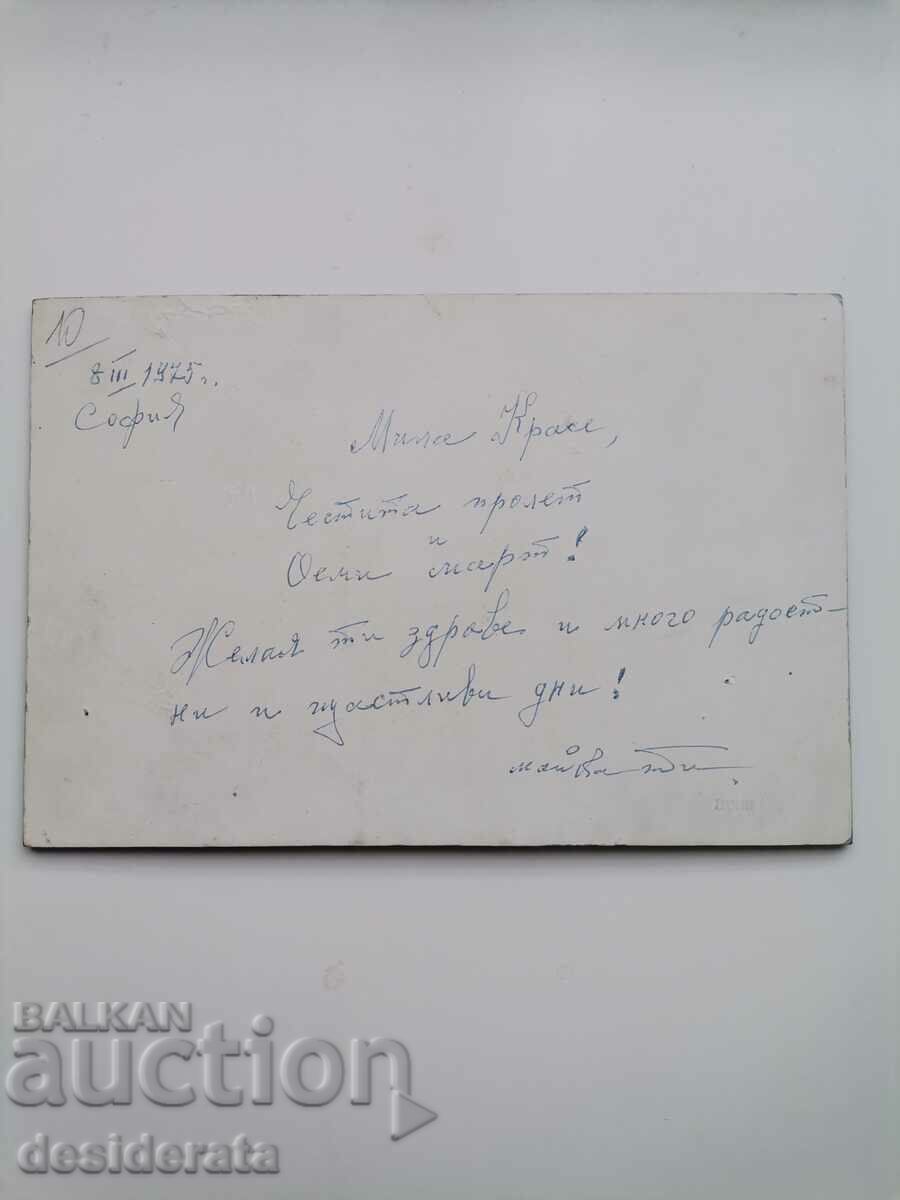 10
8 III 1975г.
София
Мила Красе,
Честита пролет
и
Осми март!
Желая ти здраве и много радост-
ни и щастливи дни!
майка ти
BALKAN
auction
desiderata